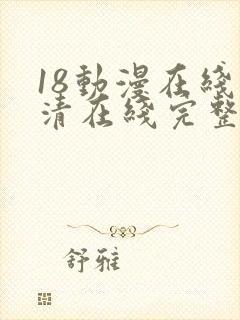 18動漫在綫
清在綫完整
舒雅